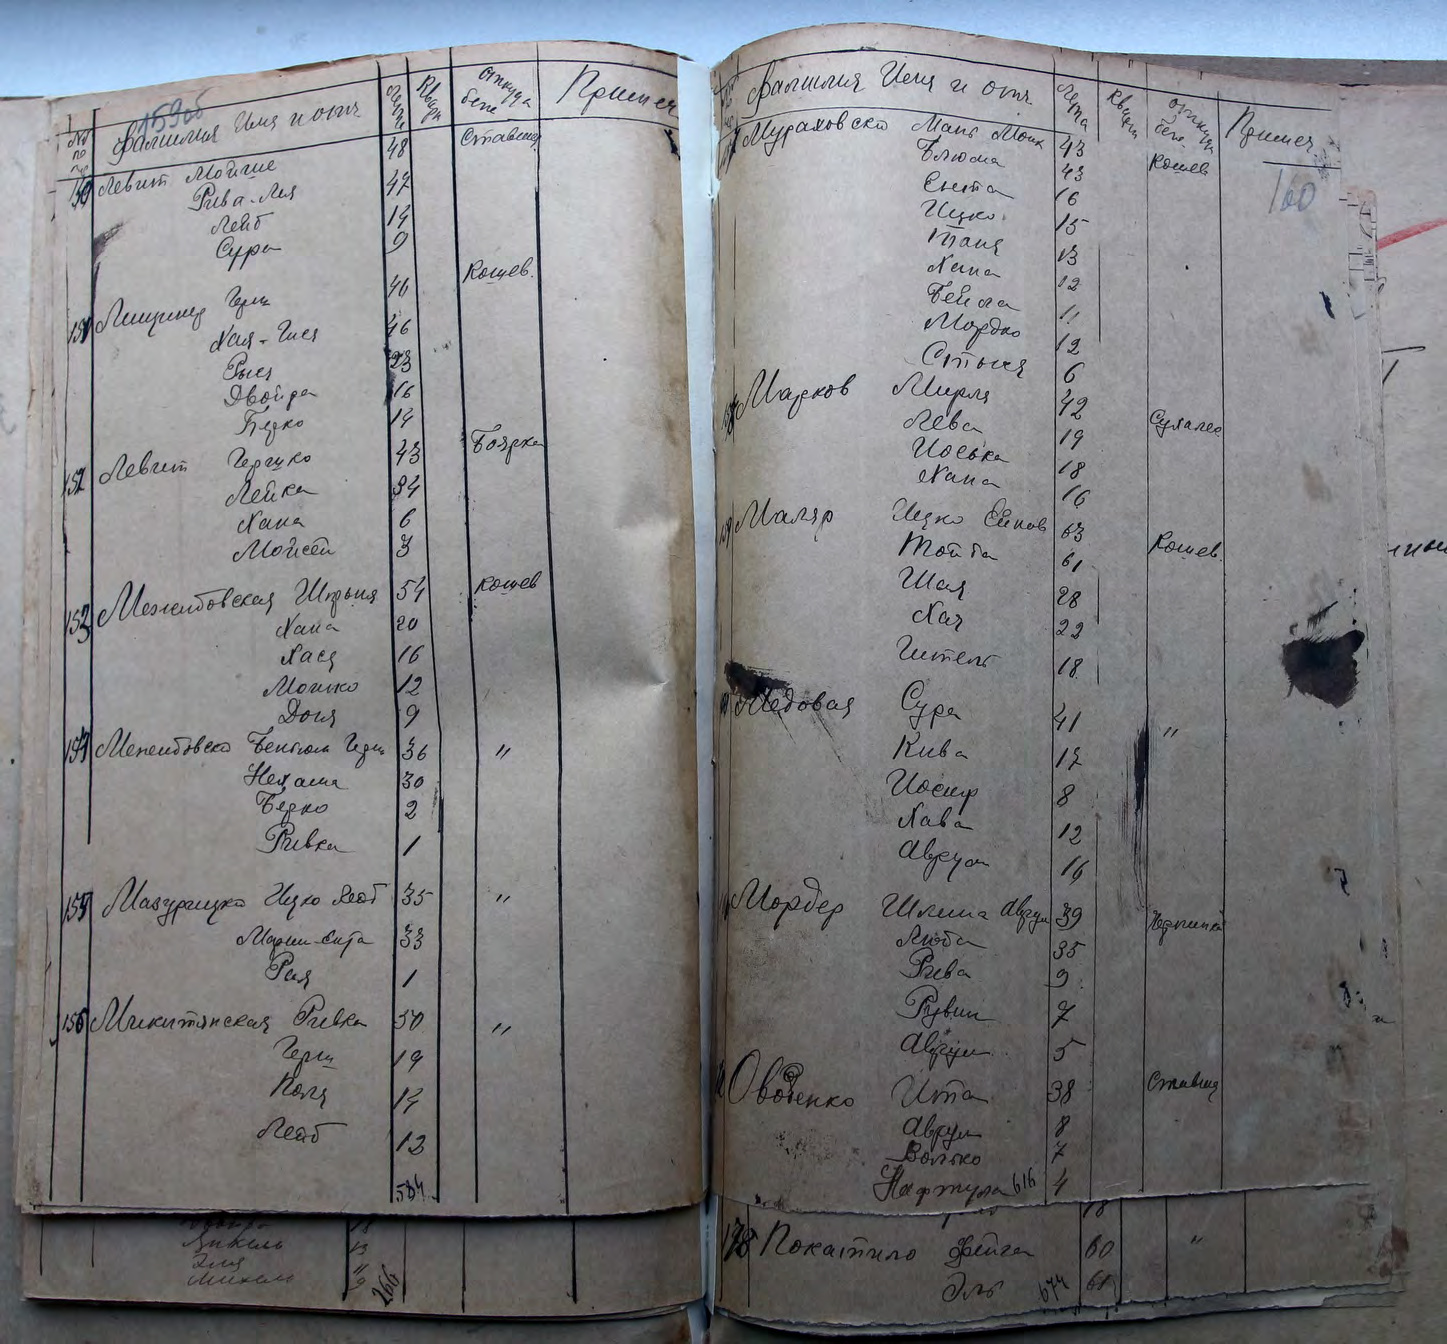 159об
№ по пор Фамилия Имя и отч. Лета Кварт откуда беж Примеч
150 Левит Мойше 48 Ставищ
Рива-Лея 47
Лейб 14
Сура 9
151 Лищинер Герш 46 Кошев.
Хая-Гися 46
Рыся 23
Двойра 16
Берко 14
152 Левит Гершко 43 Боярка
Лейка 34
Хана 6
Мойсей 3
153 Межибовская Шпрыня 54 Кошев
Хана 20
Хася 16
Мошко 12
Доня 9
154 Межибовско Бенюм Герш 36 "
Нехама 30
Берко 2
Ривка 1
155 Мазурицко Ицко Лейб 35 "
Мариш-Сита 33
Рая 1
156 Микитянская Ривка 50 "
Герш 19
Поля 14
Лейб 12
584
Янкель 13
Эля 11
Михель 9
266
Фамилия Имя и отч. Лета Кварт откуда беж. Примеч.
160
Мураховско Мань Мошк 43 Кошев
Блюма 43
Ента 16
Ицко 15
Таня 13
Хана 12
Бейла 11
Мордко 12
Стыся 6
Марков Мирля 42
Лева 19 Сухалес
Иоська 18
Хана 16
159 Маляр Ицко Ейнов 63 Кошев.
Тойба 61
Шая 28
Хая 22
Гитель 18
Медовая Сура 41 "
Кива 17
Иосиф 8
Хава 12
Аврум 16
Мордер Шлема Аврум 39
Люба 35
Рива 9
Рувин 7
Аврум 5
Оводенко Ита 38 Ставищ
Аврум 8
Волько 7
Нафтула 616 4
18
178 Покатило Фейга 60 "
Эль 674 61